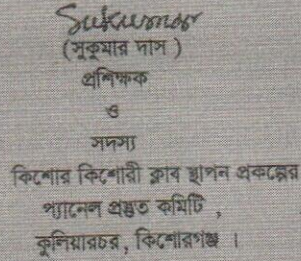 Sukumar
(সুকুমার দাস)
প্রশিক্ষক
ও
সদস্য
কিশোর কিশোরী ক্লাব স্থাপন প্রকল্পের
প্যানেল প্রস্তুত কমিটি,
কুলিয়ারচর, কিশোরগঞ্জ ।